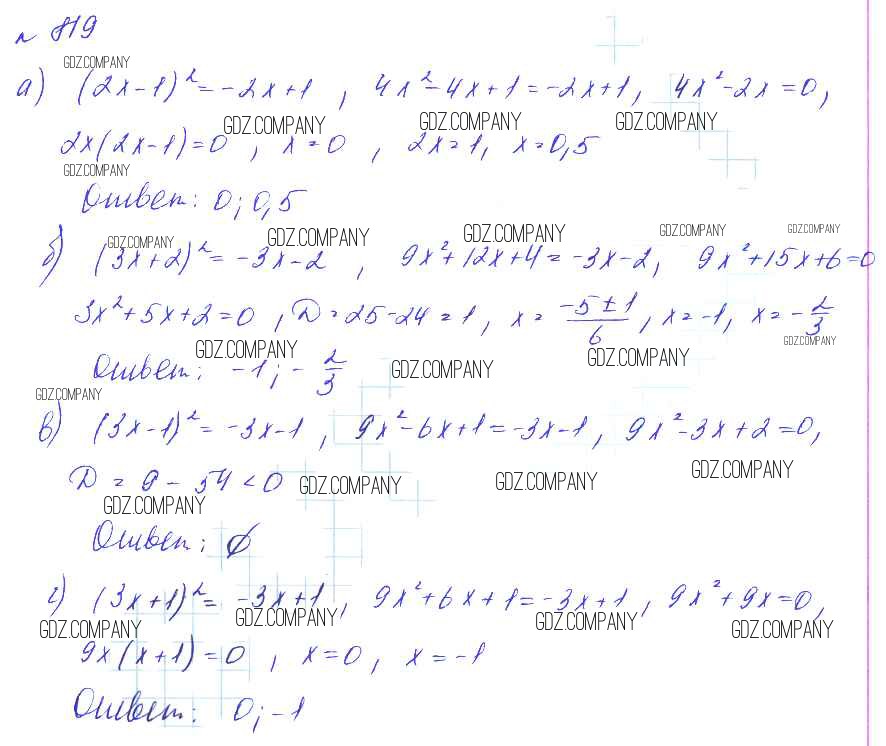 № 819
GDZ.COMPANY
а) (2x-1)² = -2x+1, 4x²-4x+1=-2x+1, 4x²-2x=0,
GDZ.COMPANY GDZ.COMPANY GDZ.COMPANY
2x(2x-1)=0, x=0, 2x=1, x=0,5
GDZ.COMPANY
Ответ: 0; 0,5
GDZ.COMPANY GDZ.COMPANY GDZ.COMPANY GDZ.COMPANY GDZ.COMPANY
б) (3x+2)² = -3x-2, 9x²+12x+4=-3x-2, 9x²+15x+6=0
3x²+5x+2=0, D=25-24=1, x = (-5±1)/6, x=-1, x=-2/3
GDZ.COMPANY GDZ.COMPANY GDZ.COMPANY
Ответ: -1; -2/3
GDZ.COMPANY GDZ.COMPANY
в) (3x-1)² = -3x-1, 9x²-6x+1=-3x-1, 9x²-3x+2=0,
D = 9 - 54 < 0
GDZ.COMPANY GDZ.COMPANY GDZ.COMPANY GDZ.COMPANY
Ответ: ∅
г) (3x+1)² = -3x+1, 9x²+6x+1=-3x+1, 9x²+9x=0,
GDZ.COMPANY GDZ.COMPANY GDZ.COMPANY GDZ.COMPANY
9x(x+1)=0, x=0, x=-1
Ответ: 0; -1